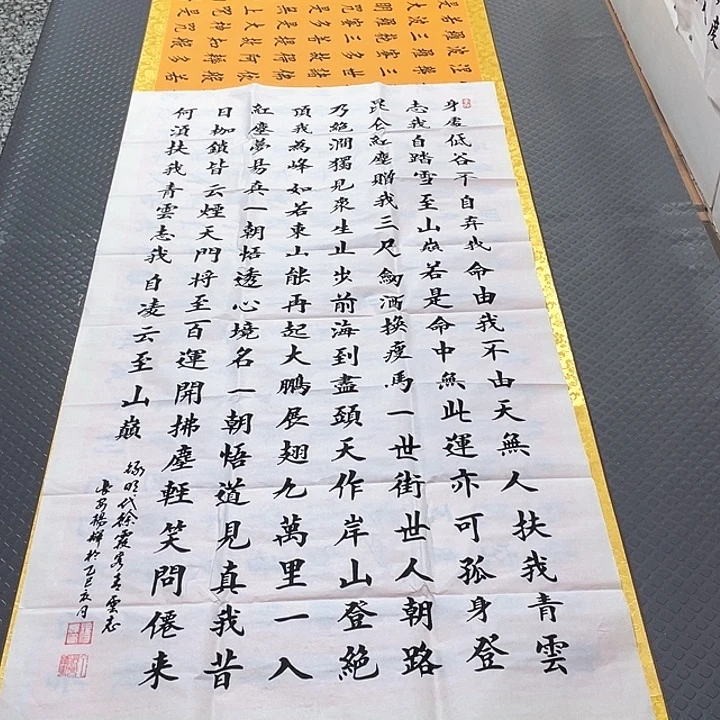 身處低谷不自弃我命由我不由天無人扶我青雲
志我自踏雪至山巔若是命中無此運亦可孤身登
昆仑紅塵贈我三尺劍酒换瘦馬一世街世人朝路
乃絕澗獨見衆生止步前海到盡頭天作岸山登絕
頂我為峰如若東山能再起大鵬展翅九萬里一入
紅塵夢易真一朝悟透心境名一朝悟道見真我昔
日枷鎖皆云煙天門將至百運開拂塵輕笑問僊来
何須扶我青雲志我自凌云至山巔
錄明代徐霞客青雲志
長安楊輝於乙巳夏月